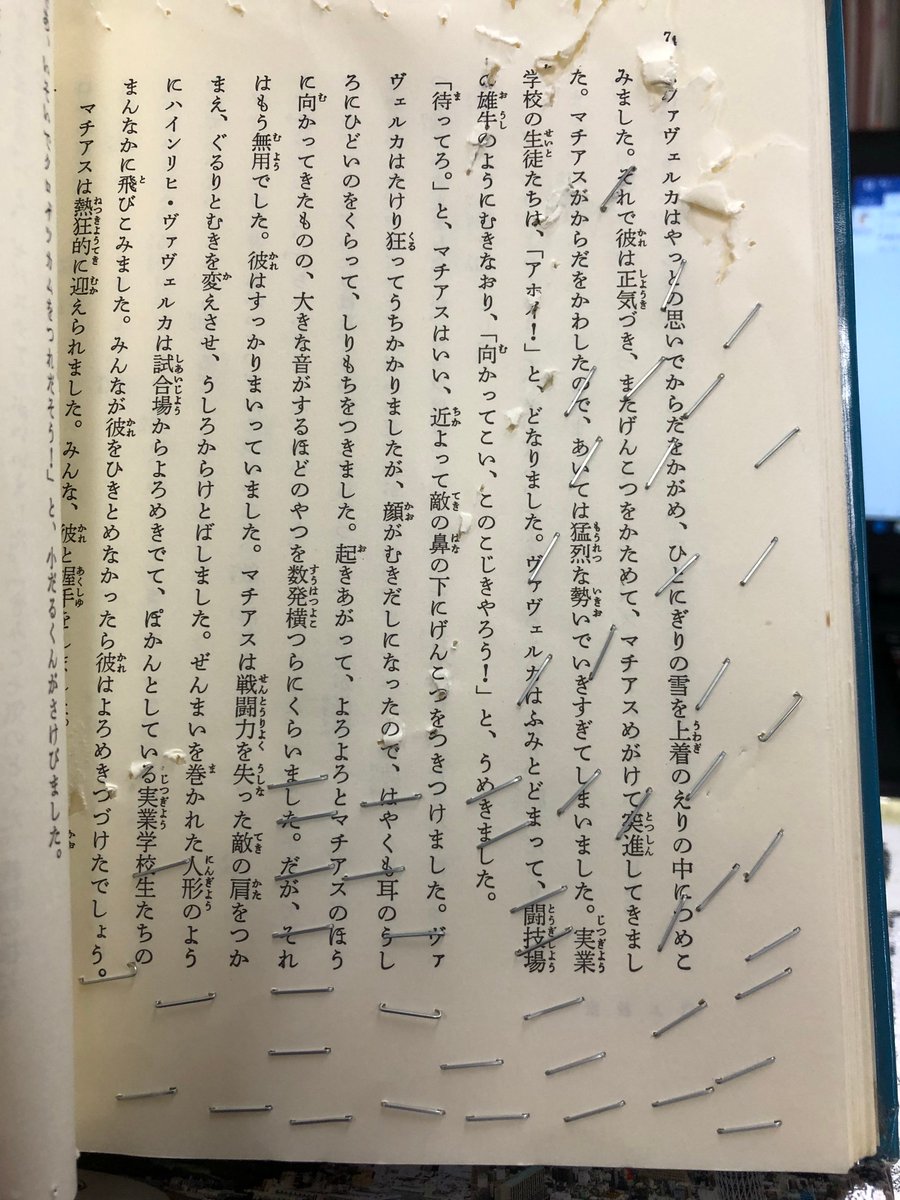 ァヴェルカはやっとの思いでからだをかがめ、ひとにぎりの雪を上着のえりの中につめこ
みました。それで彼は正気づき、またげんこつをかためて、マチアスめがけて突進してきまし
た。マチアスがからだをかわしたので、あいては猛烈な勢いでいきすぎてしまいました。実業
学校の生徒たちは、「アホイ！」と、どなりました。ヴァヴェルカはふみとどまって、闘技場
の雄牛のようにむきなおり、「向かってこい、このこじきやろう！」と、うめきました。
「待ってろ。」と、マチアスはいい、近よって敵の鼻の下にげんこつをつきつけました。ヴァ
ヴェルカはたけり狂ってうちかかりましたが、顔がむきだしになったので、はやくも耳のうし
ろにひどいのをくらって、しりもちをつきました。起きあがって、よろよろとマチアスのほう
に向かってきたものの、大きな音がするほどのやつを数発横つらにくらいました。だが、それ
はもう無用でした。彼はすっかりまいっていました。マチアスは戦闘力を失った敵の肩をつか
まえ、ぐるりとむきを変えさせ、うしろからけとばしました。ぜんまいを巻かれた人形のよう
にハインリヒ・ヴァヴェルカは試合場からよろめきでて、ぽかんとしている実業学校生たちの
まんなかに飛びこみました。みんなが彼をひきとめなかったら彼はよろめきつづけたでしょう。
マチアスは熱狂的に迎えられました。みんな、彼と握手を
をつれだそう！」と、小だるくんがさけびました。